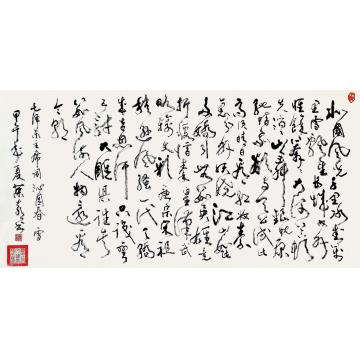 北國風光千里冰封萬
里雪飄望長城內外
惟餘莽莽大河上下頓
失滔滔山舞銀蛇原
馳蠟象欲與天公試比
高須晴日看紅妝素
裹分外妖嬈江山如此
多嬌引無數英雄競
折腰惜秦皇漢武
略輸文采唐宗宋祖
稍遜風騷一代天驕
成吉思汗只識彎
弓射大雕俱往矣
數風流人物還看
今朝
毛澤東主席詞沁園春雪
甲午年夏